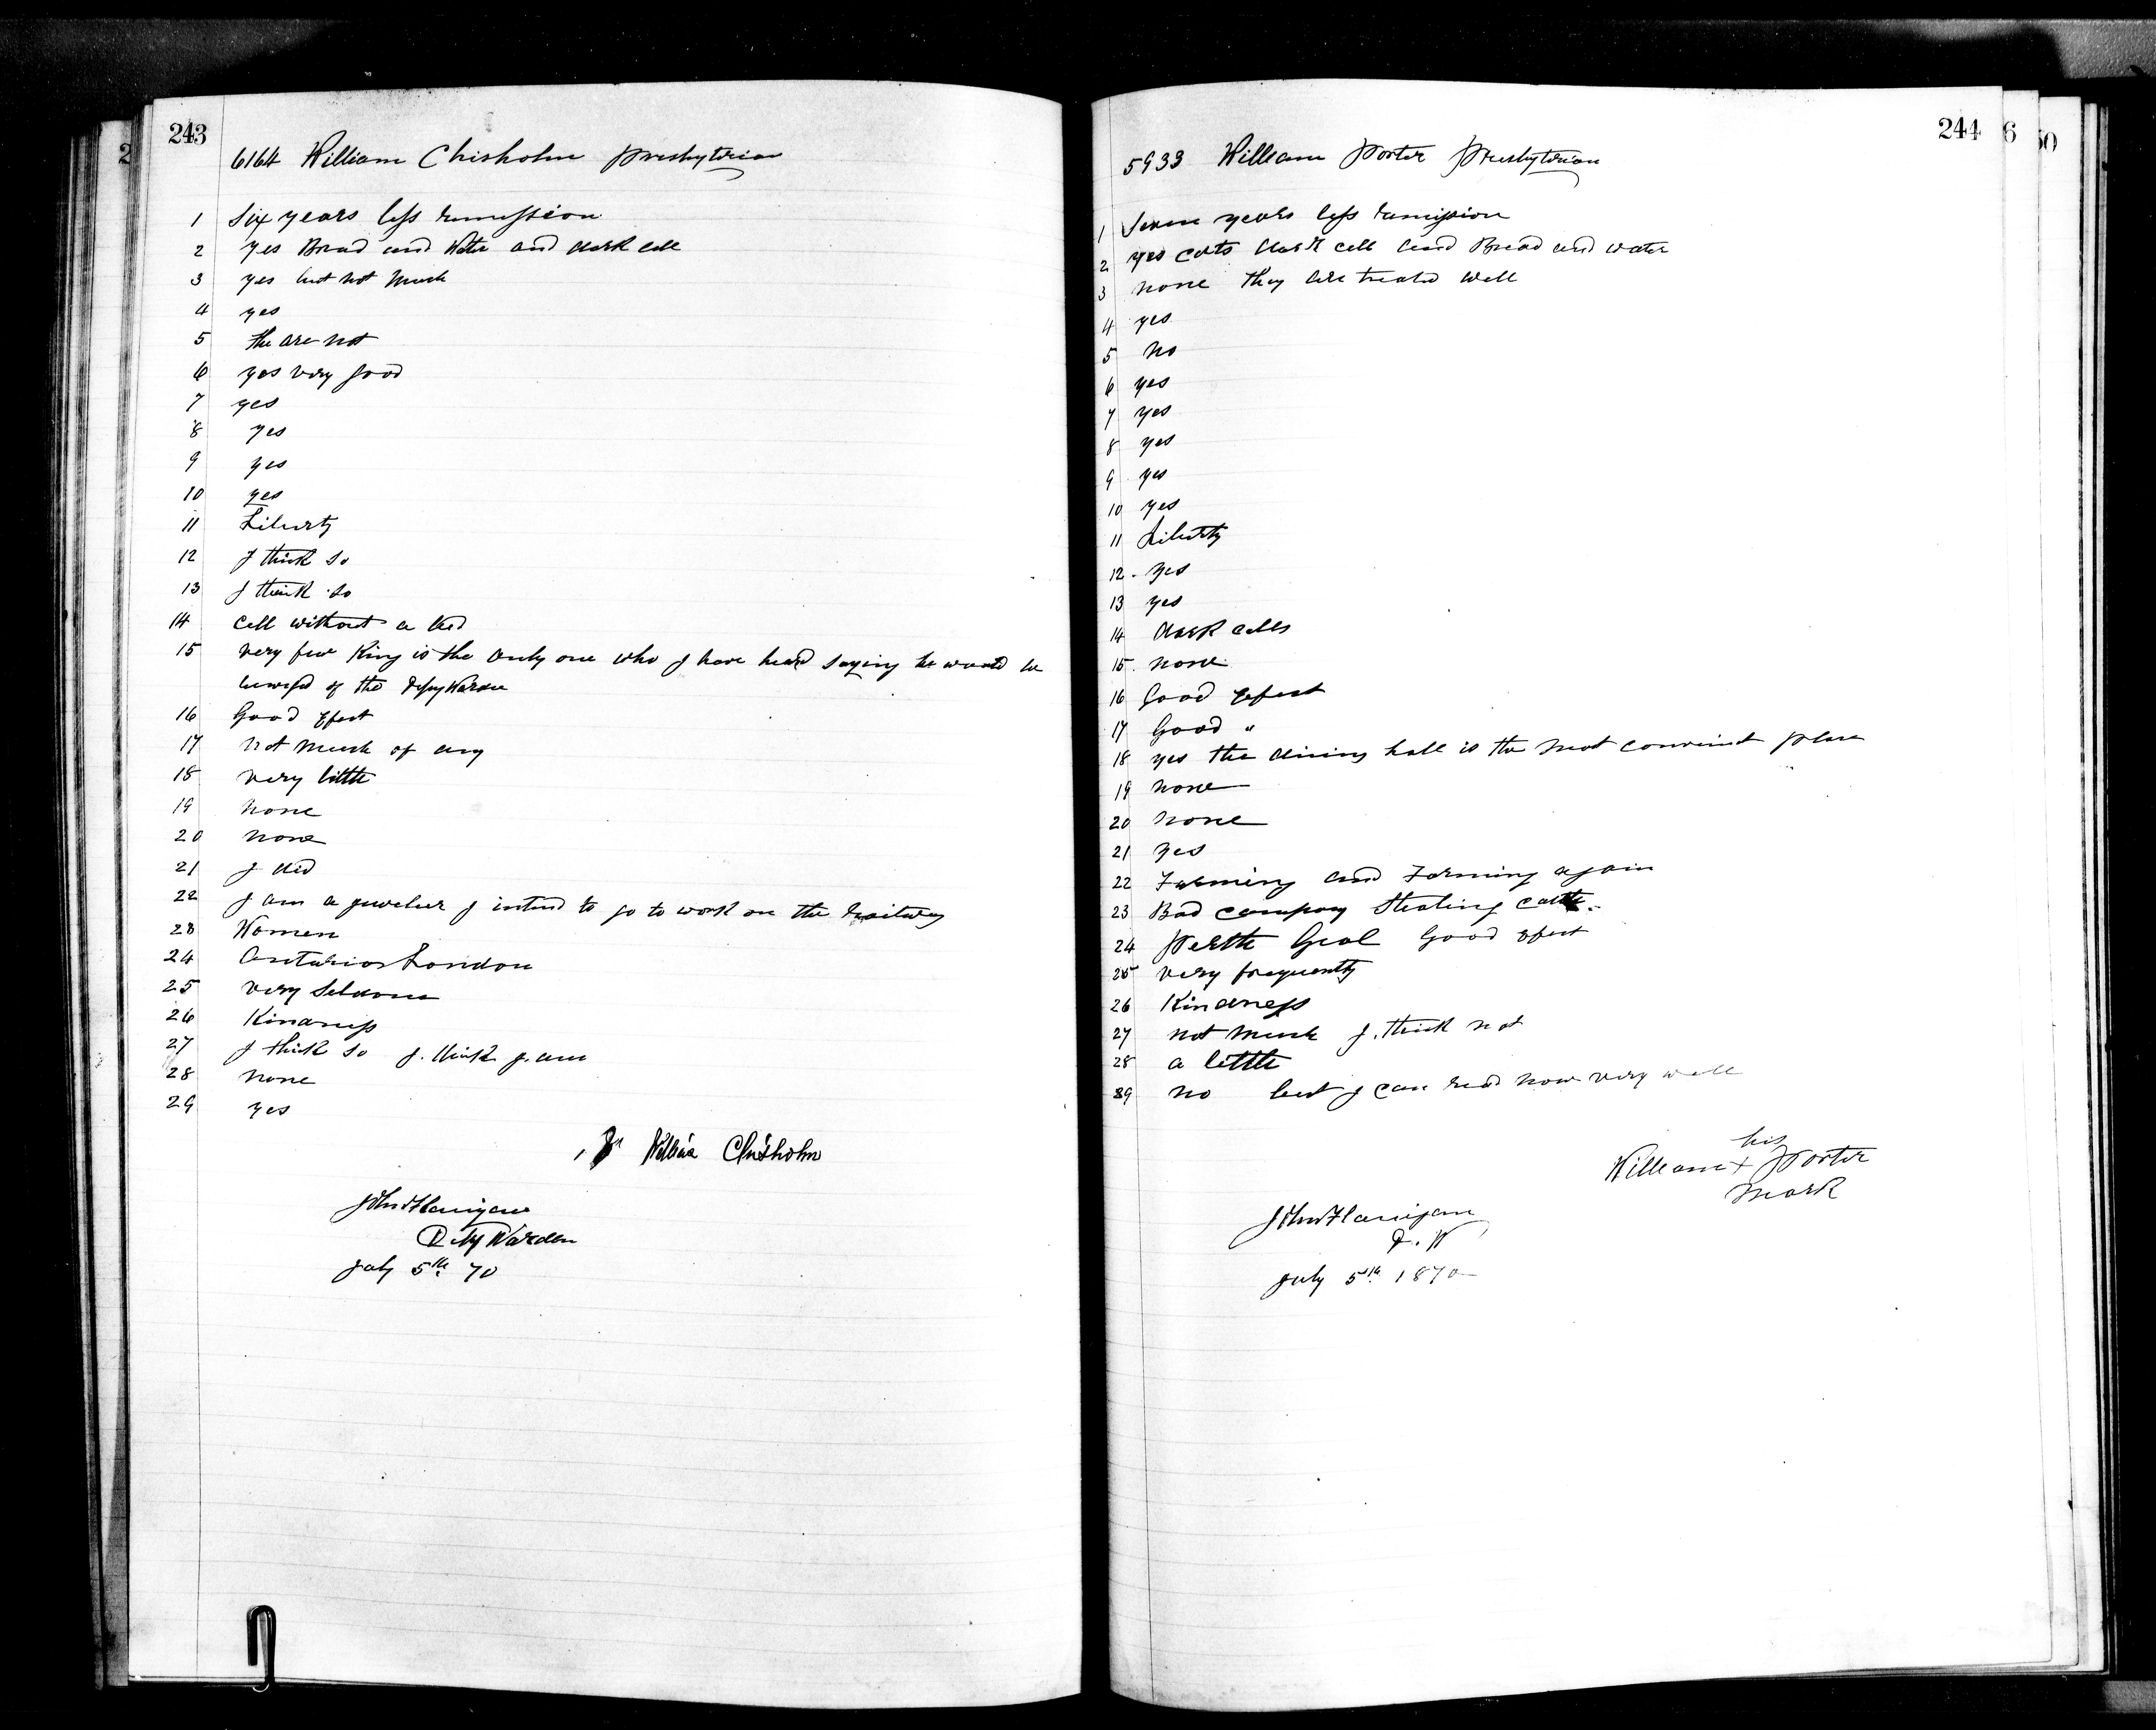 243
6164 William Chisholm Presbyterian
1 Six years less remission
2 yes Bread and Water and dark cell
3 yes but not much
4 yes
5 the are not
6 yes very good
7 yes
8 yes
9 yes
10 yes
11 Liberty
12 I think so
13 I think so
14 Cell without a bed
15 very few King is the only one who I have heard saying he would be
of the Depy Warden
16 Good Efect
17 not much of any
18 very little
19 none
20 none
21 I did
22 I am a jeweler I intend to go to work on the Railway
23 Women
24 London
25 very Seldom
26 Kindness
27 I think so I think I am
28 none
29 yes
William Chisholm
John Flanigan
Dety Warden
July 5th 70
244
5933 William Porter Presbyterian
1 Seven years less remission
2 yes cats dark cell and Bread and water
3 none they are treated well
4 yes
5 no
6 yes
7 yes
8 yes
9 yes
10 yes
11 Liberty
12 yes
13 yes
14 dark cells
15 none
16 Good Efect
17 Good "
18 yes the dining hall is the most place
19 none
20 none
21 yes
22 Farming and Farming again
23 Bad company Stealing cattle
24 Perth Goal Good Efect
25 very frequently
26 Kindness
27 not much I think not
28 a little
29 no but I can read now very well
his
William + Porter
mark
John Flanigan
D. W
July 5th 1870
2
6
50